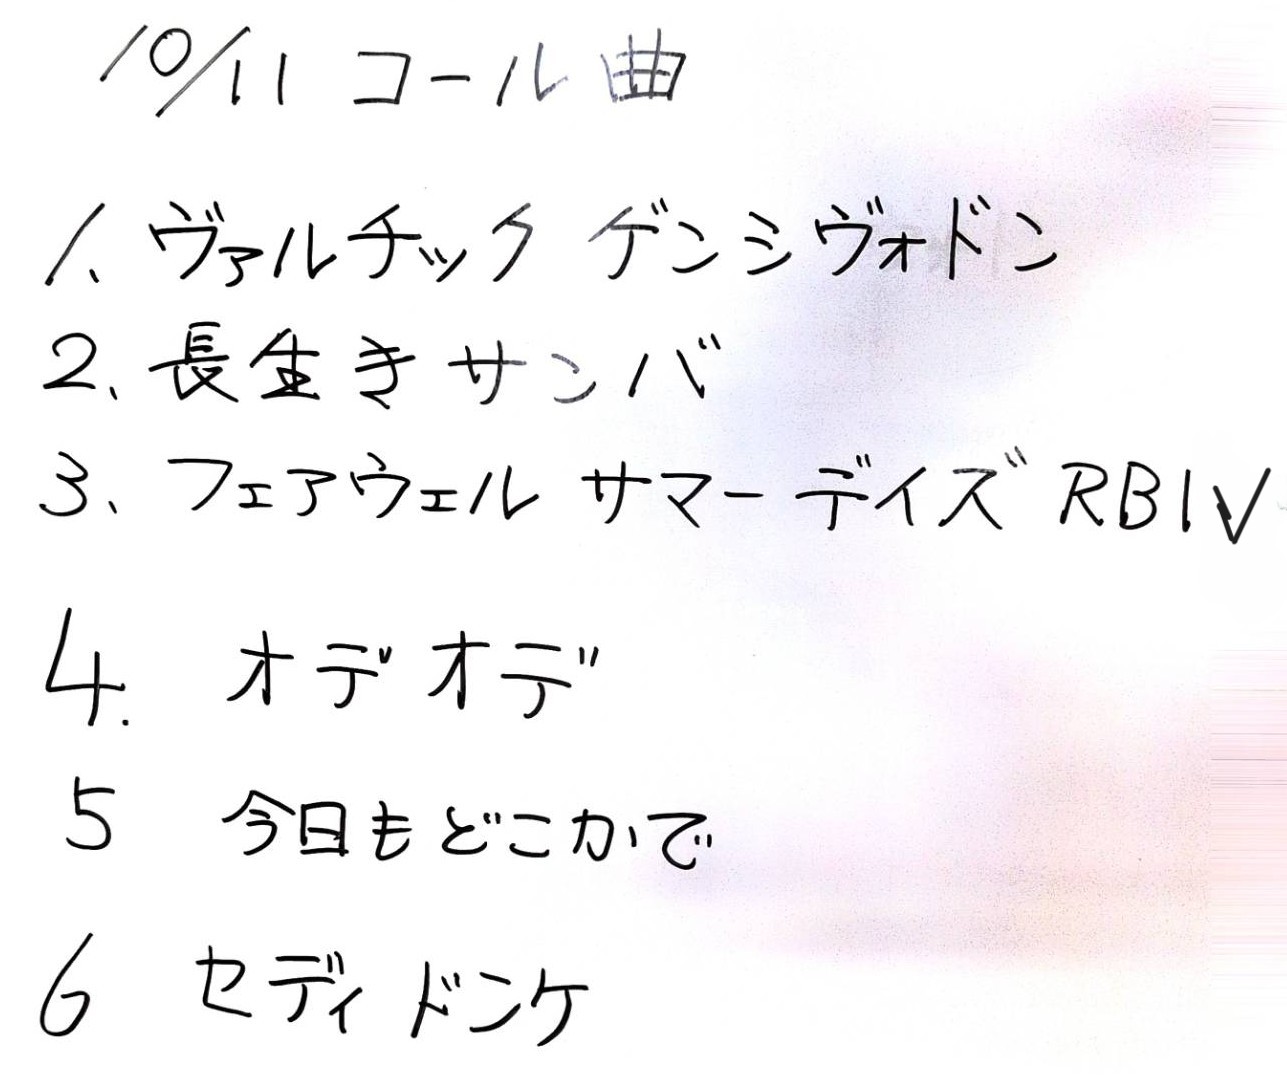 10/11 コール曲
1、ヴァルチック ゲンシヴォドン
2、長生きサンバ
3、フェアウェル サマーデイズ RBIV
4. オデオデ
5 今日もどこかで
6 セディ ドンケ